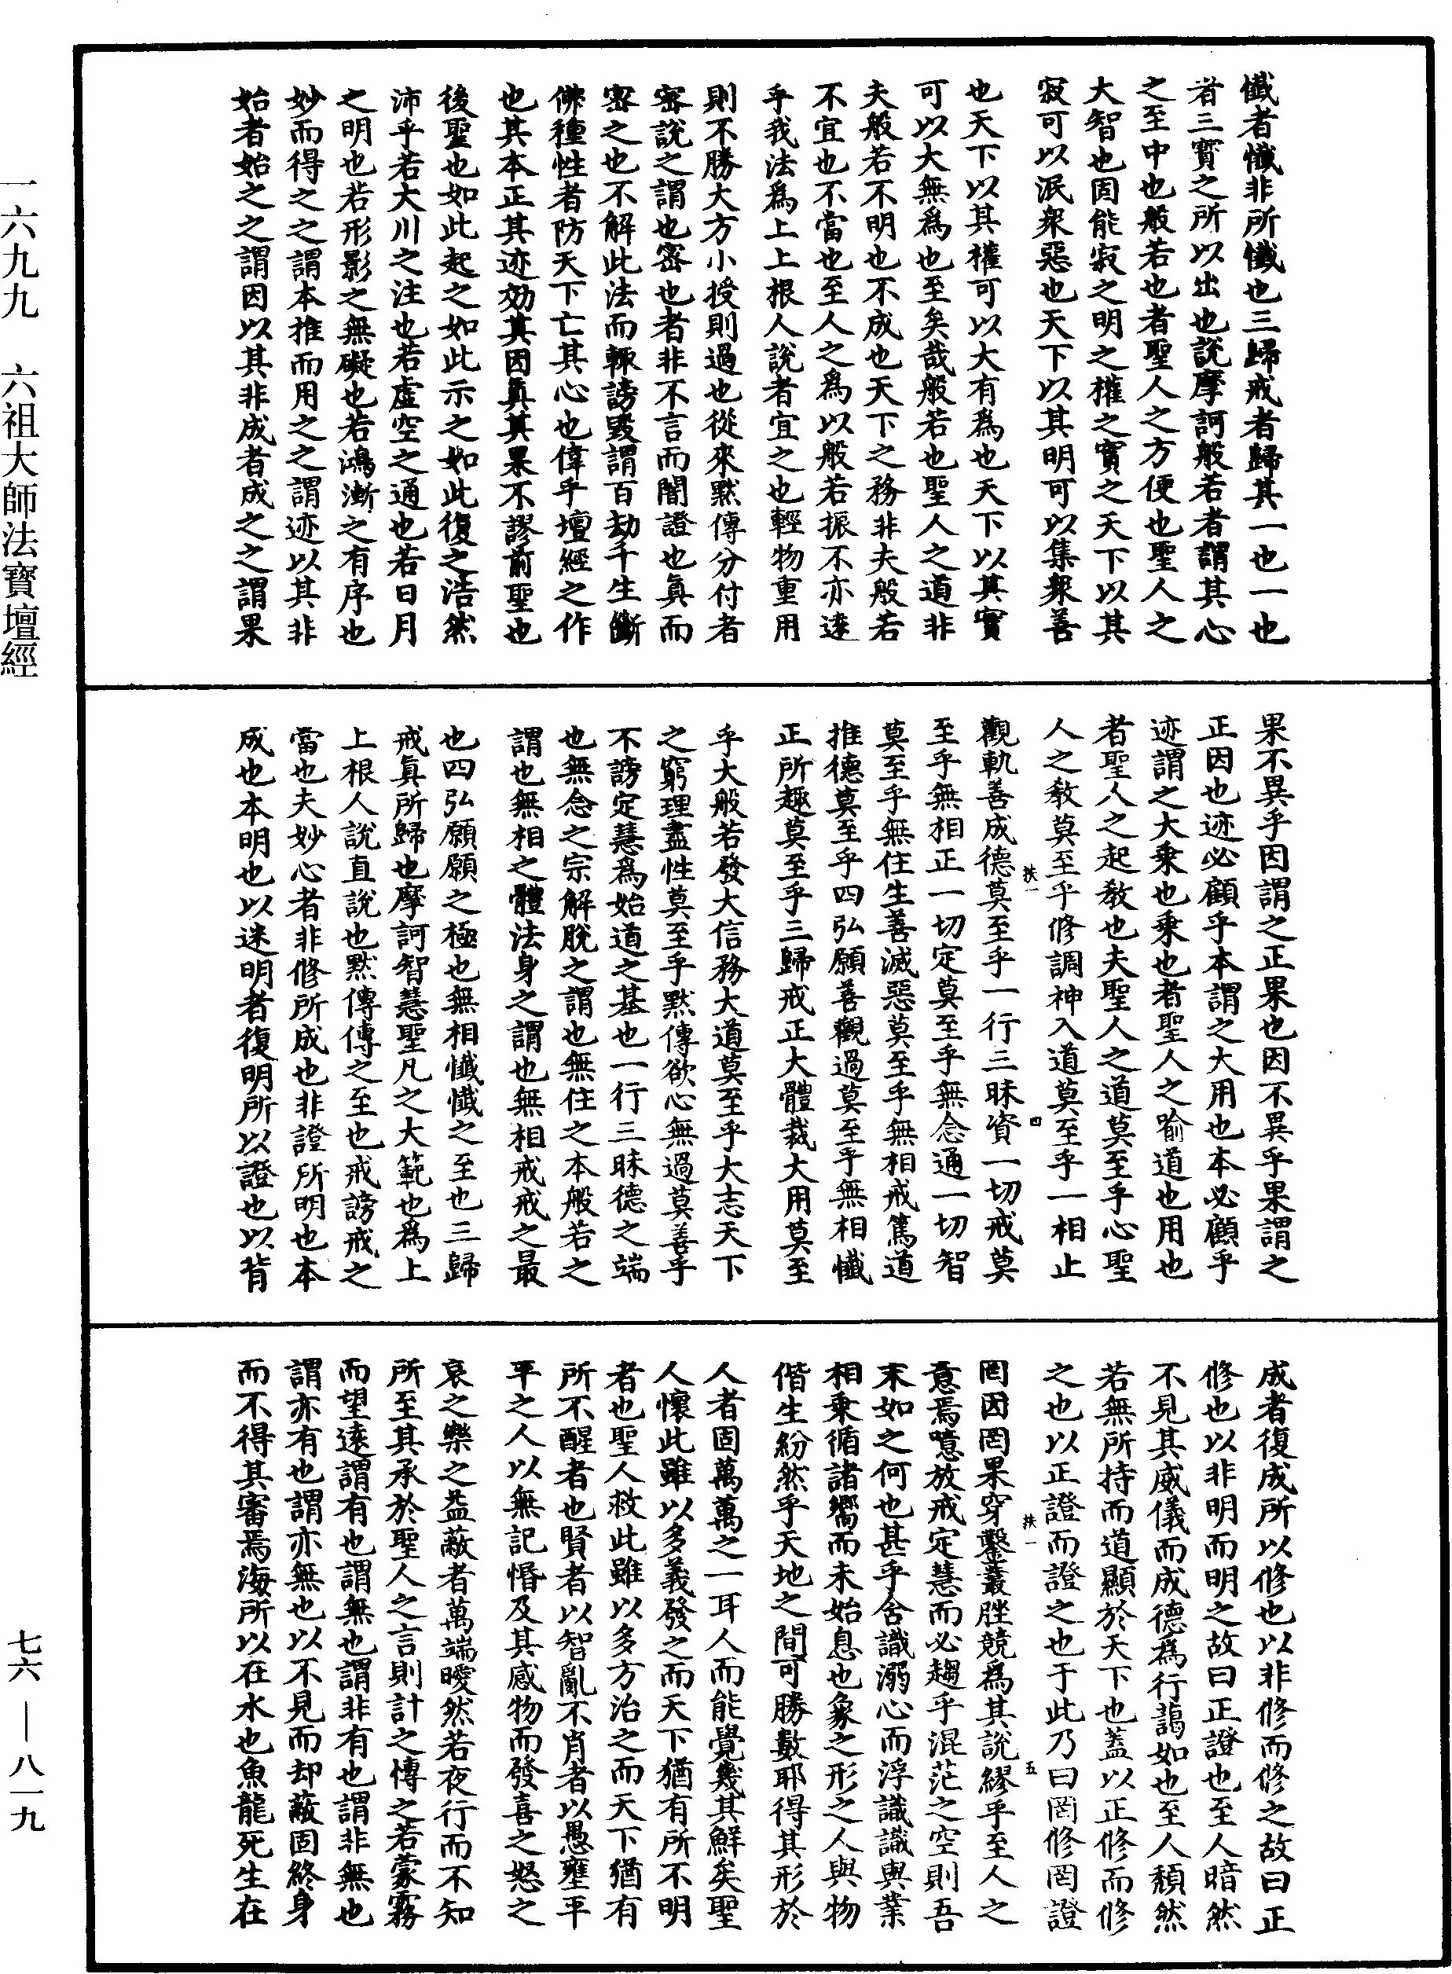 懺者懺非所懺也三歸戒者歸其一也一也
者三寶之所以出也說摩訶般若者謂其心
之至中也般若也者聖人之方便也聖人之
大智也固能寂之明之權之實之天下以其
寂可以泯衆惡也天下以其明可以集衆善
也天下以其權可以大有爲也天下以其實
可以大無爲也至矣哉般若也聖人之道非
夫般若不明也不成也天下之務非夫般若
不宜也不當也至人之爲以般若振不亦遠
乎我法爲上上根人說者宜之也輕物重用
則不勝大方小授則過也從來默傳分付者
密說之謂也密也者非不言而闇證也真而
密之也不解此法而輒謗毀謂百劫千生斷
佛種性者防天下亡其心也偉乎壇經之作
也其本正其迹効其因真其果不謬前聖也
後聖也如此起之如此示之如此復之浩然
沛乎若大川之注也若虛空之通也若日月
之明也若形影之無礙也若鴻漸之有序也
妙而得之之謂本推而用之之謂迹以其非
始者始之之謂因以其非成者成之之謂果
果不異乎因謂之正果也因不異乎果謂之
正因也迹必顧乎本謂之大用也本必顧乎
迹謂之大乘也乘也者聖人之喻道也用也
者聖人之起教也夫聖人之道莫至乎心聖
人之教莫至乎修調神入道莫至乎一相止
扶一 四
觀軌善成德莫至乎一行三昧資一切戒莫
至乎無相正一切定莫至乎無念通一切智
莫至乎無住生善滅惡莫至乎無相戒篤道
推德莫至乎四弘願善觀過莫至乎無相懺
正所趣莫至乎三歸戒正大體裁大用莫至
乎大般若發大信務大道莫至乎大志天下
之窮理盡性莫至乎默傳欲心無過莫善乎
不謗定慧爲始道之基也一行三昧德之端
也無念之宗解脫之謂也無住之本般若之
謂也無相之體法身之謂也無相戒戒之最
也四弘願願之極也無相懺懺之至也三歸
戒真所歸也摩訶智慧聖凡之大範也爲上
上根人說直說也默傳傳之至也戒謗戒之
當也夫妙心者非修所成也非證所明也本
成也本明也以迷明者復明所以證也以背
成者復成所以修也以非修而修之故曰正
修也以非明而明之故曰正證也至人暗然
不見其威儀而成德爲行藹如也至人頹然
若無所持而道顯於天下也蓋以正修而修
之也以正證而證之也于此乃曰罔修罔證
扶一 五
罔因罔果穿鑿叢脞競爲其說繆乎至人之
意焉噫放戒定慧而必趨乎混茫之空則吾
末如之何也甚乎含識溺心而浮識識與業
相乘循諸嚮而未始息也象之形之人與物
偕生紛然乎天地之間可勝數耶得其形於
人者固萬萬之一耳人而能覺幾其鮮矣聖
人懷此雖以多義發之而天下猶有所不明
者也聖人救此雖以多方治之而天下猶有
所不醒者也賢者以智亂不肖者以愚壅平
平之人以無記惛及其感物而發喜之怒之
哀之樂之益蔽者萬端曖然若夜行而不知
所至其承於聖人之言則計之博之若蒙霧
而望遠謂有也謂無也謂非有也謂非無也
謂亦有也謂亦無也以不見而却蔽固終身
而不得其審焉海所以在水也魚龍死生在
一六九九 六祖大師法寶壇經
七六 — 八一九